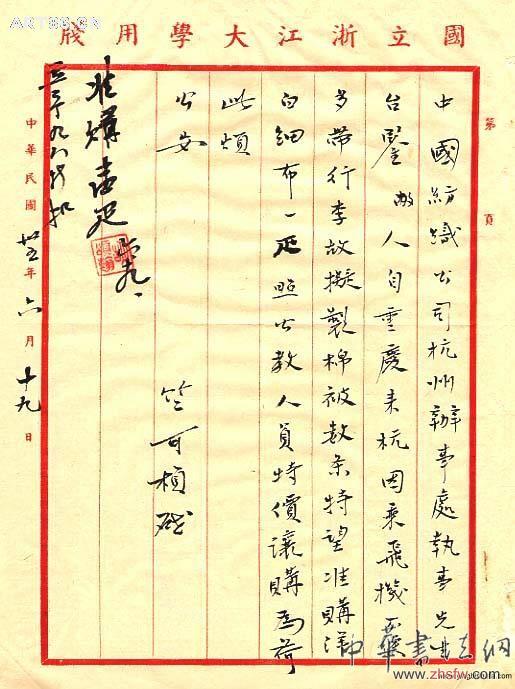 國立浙江大學用牋
第 頁
中國紡織公司杭州辦事處執事先生
台鑒 敝人自重慶來杭因乘飛機不
多帶行李故擬製棉被數条特望准購洋
白細布一疋照公教人員特價讓購為荷
此頌
公安
竺可楨啟
准購壹疋
六、十九、
中華民國卅五年六月十九日
ART86.CN
中華書法網
www.zhsfw.com